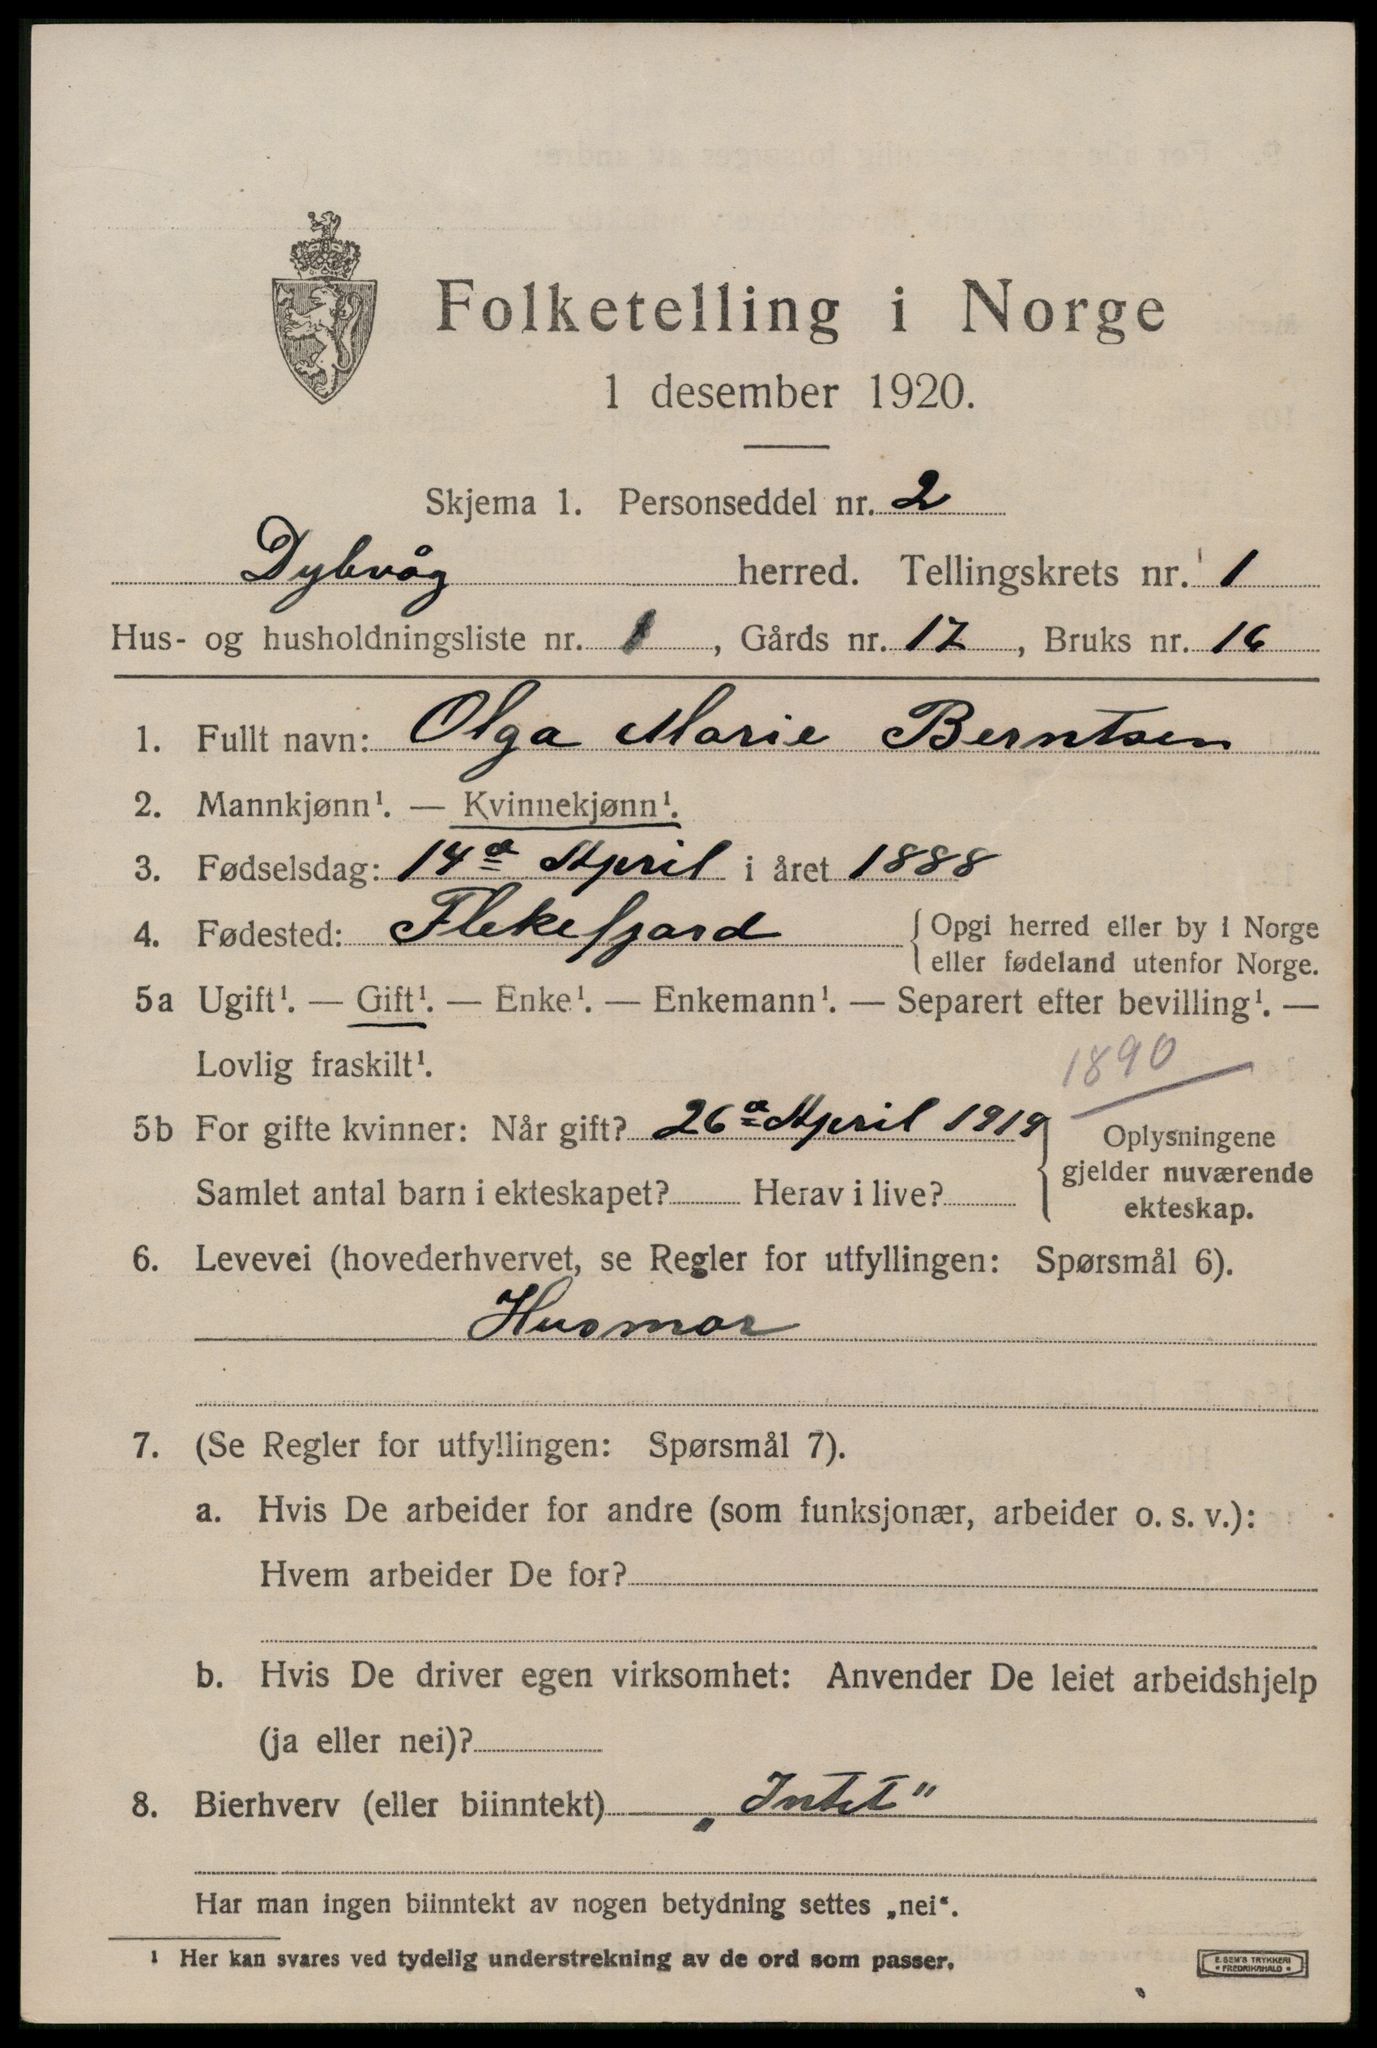 Folketelling i Norge
1 desember 1920.
Skjema 1. Personseddel nr. 2
Dybvåg herred. Tellingskrets nr. 1
Hus- og husholdningsliste nr. 1, Gårds nr. 17, Bruks nr. 16
1. Fullt navn: Olga Marie Berntsen
2. Mannkjønn¹. — Kvinnekjønn¹.
3. Fødselsdag: 14de April i året 1888
4. Fødested: Flekefjord { Opgi herred eller by i Norge
eller fødeland utenfor Norge.
5a Ugift¹. — Gift¹. — Enke¹. — Enkemann¹. — Separert efter bevilling¹. —
Lovlig fraskilt¹.
1890
5b For gifte kvinner: Når gift? 26de April 1919 } Oplysningene
gjelder nuværende
Samlet antal barn i ekteskapet? Herav i live?
ekteskap.
6. Levevei (hovederhvervet, se Regler for utfyllingen: Spørsmål 6).
Husmor
7. (Se Regler for utfyllingen: Spørsmål 7).
a. Hvis De arbeider for andre (som funksjonær, arbeider o. s. v.):
Hvem arbeider De for?
b. Hvis De driver egen virksomhet: Anvender De leiet arbeidshjelp
(ja eller nei)?
8. Bierhverv (eller biinntekt) „Intet"
Har man ingen biinntekt av nogen betydning settes „nei“.
¹ Her kan svares ved tydelig understrekning av de ord som passer.
E. SEM'S TRYKKERI
* FREDRIKSHALD *